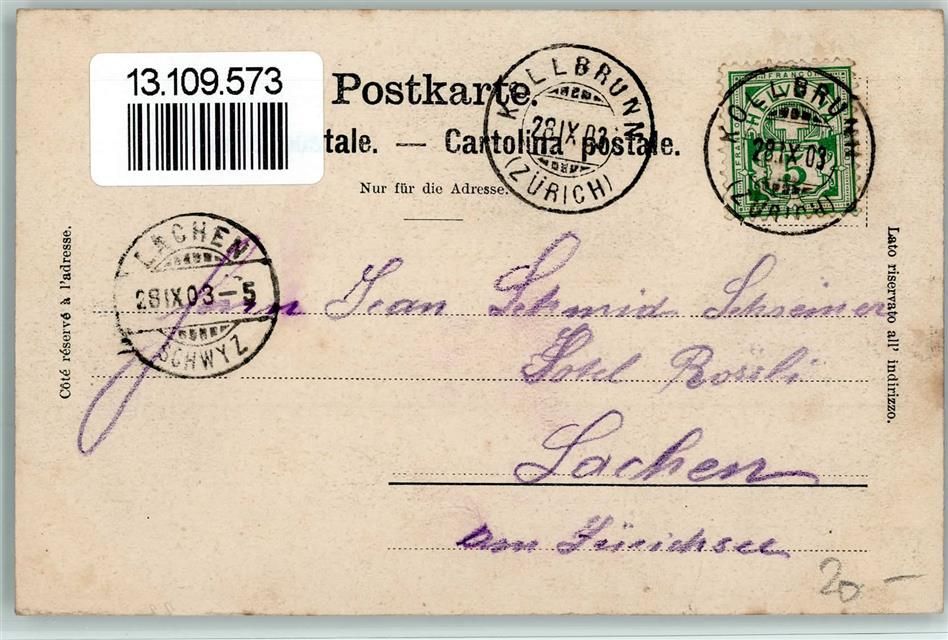 13.109.573
Postkarte.
tale. — Cartolina postale.
Nur für die Adresse.
KOLLBRUNN
28.IX.03
(ZÜRICH)
FRANCO
HELVETIA
KOLLBRUNN
28.IX.03
(ZÜRICH)
5
LACHEN
28.IX.03-5
SCHWYZ
Côté réservé à l'adresse.
Lato riservato all' indirizzo.
Herrn Jean Schmid Schreiner
Hotel Rössli
Lachen
am Zürichsee
20.-